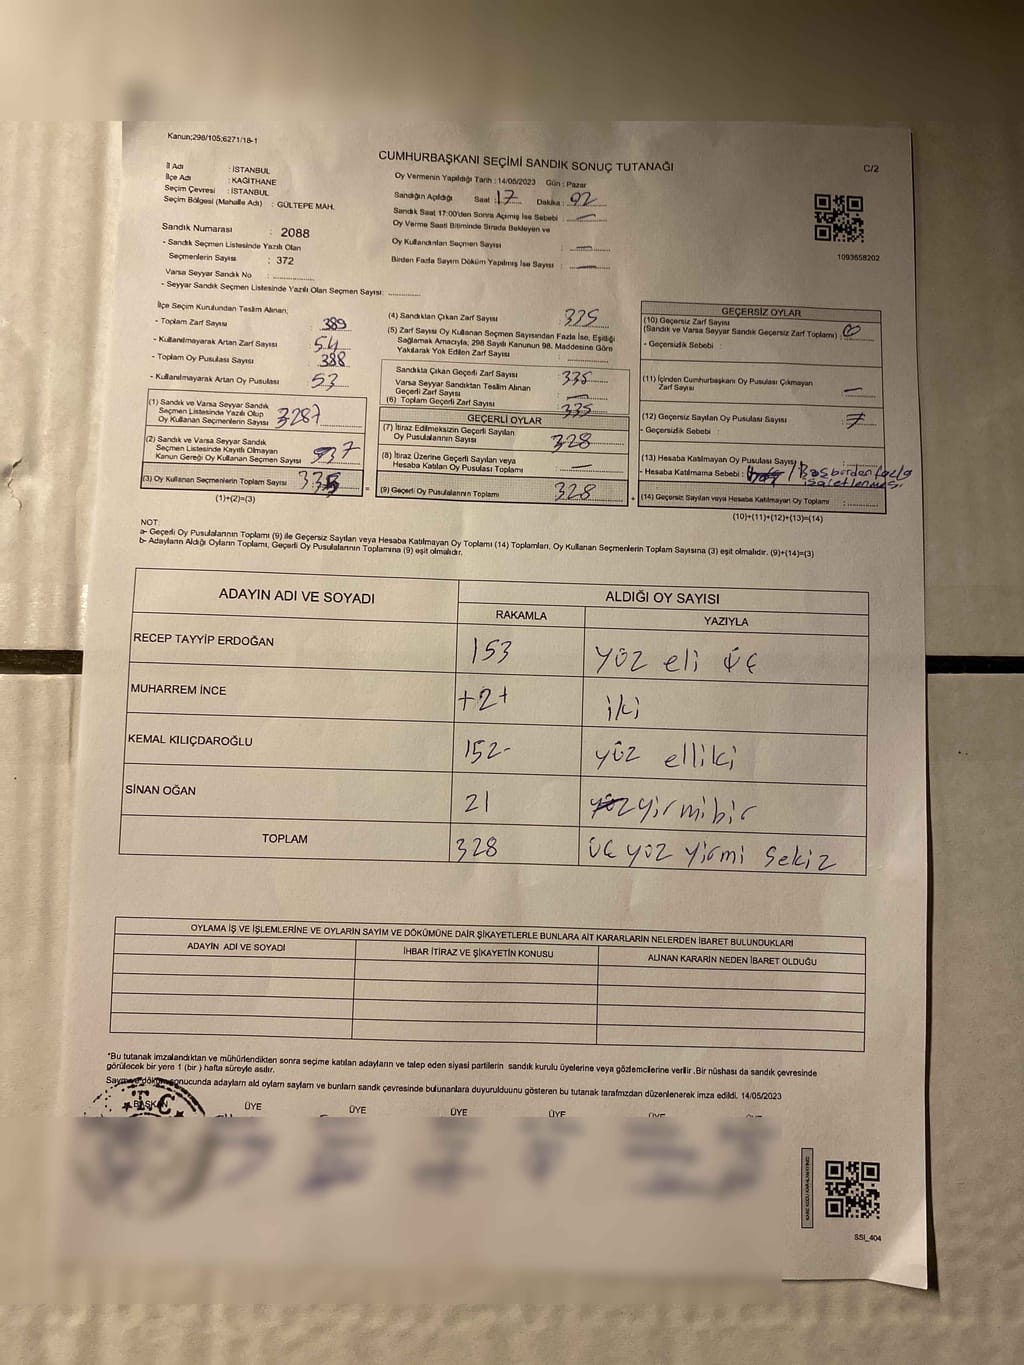 Kanun;298/105;6271/18-1
CUMHURBAŞKANI SEÇİMİ SANDIK SONUÇ TUTANAĞI
C/2
İl Adı : İSTANBUL
İlçe Adı : KAĞITHANE
Seçim Çevresi : İSTANBUL
Seçim Bölgesi (Mahalle Adı) : GÜLTEPE MAH.
Oy Vermenin Yapıldığı Tarih : 14/05/2023 Gün : Pazar
Sandığın Açıldığı Saat : 17 Dakika :
Sandık Saat 17:00'den Sonra Açımış İse Sebebi : —
Oy Verme Saati Bitiminde Sırada Bekleyen ve
Oy Kullandırılan Seçmen Sayısı : —
Birden Fazla Sayım Döküm Yapılmış İse Sayısı : —
1093658202
Sandık Numarası : 2088
- Sandık Seçmen Listesinde Yazılı Olan
Seçmenlerin Sayısı : 372
Varsa Seyyar Sandık No :
- Seyyar Sandık Seçmen Listesinde Yazılı Olan Seçmen Sayısı:
İlçe Seçim Kurulundan Teslim Alınan;
- Toplam Zarf Sayısı 389
- Kullanılmayarak Artan Zarf Sayısı 54
- Toplam Oy Pusulası Sayısı 388
- Kullanılmayarak Artan Oy Pusulası 53
(1) Sandık ve Varsa Seyyar Sandık
Seçmen Listesinde Yazılı Olup
Oy Kullanan Seçmenlerin Sayısı
(2) Sandık ve Varsa Seyyar Sandık
Seçmen Listesinde Kayıtlı Olmayan
Kanun Gereği Oy Kullanan Seçmen Sayısı
(3) Oy Kullanan Seçmenlerin Toplam Sayısı
(1)+(2)=(3)
(4) Sandıktan Çıkan Zarf Sayısı 335
(5) Zarf Sayısı Oy Kullanan Seçmen Sayısından Fazla İse, Eşitliği
Sağlamak Amacıyla; 298 Sayılı Kanunun 98. Maddesine Göre
Yakılarak Yok Edilen Zarf Sayısı :
Sandıkta Çıkan Geçerli Zarf Sayısı : 335
Varsa Seyyar Sandıktan Teslim Alınan
Geçerli Zarf Sayısı : —
(6) Toplam Geçerli Zarf Sayısı : 335
GEÇERLİ OYLAR
(7) İtiraz Edilmeksizin Geçerli Sayılan
Oy Pusulalarının Sayısı : 328
(8) İtiraz Üzerine Geçerli Sayılan veya
Hesaba Katılan Oy Pusulası Toplamı : —
(9) Geçerli Oy Pusulalarının Toplamı : 328
GEÇERSİZ OYLAR
(10) Geçersiz Zarf Sayısı
(Sandık ve Varsa Seyyar Sandık Geçersiz Zarf Toplamı) : 0
- Geçersizlik Sebebi :
(11) İçinden Cumhurbaşkanı Oy Pusulası Çıkmayan
Zarf Sayısı : —
(12) Geçersiz Sayılan Oy Pusulası Sayısı : 7
- Geçersizlik Sebebi :
(13) Hesaba Katılmayan Oy Pusulası Sayısı :
- Hesaba Katılmama Sebebi :
(14) Geçersiz Sayılan veya Hesaba Katılmayan Oy Toplamı :
(10)+(11)+(12)+(13)=(14)
NOT:
a- Geçerli Oy Pusulalarının Toplamı (9) ile Geçersiz Sayılan veya Hesaba Katılmayan Oy Toplamı (14) Toplamları, Oy Kullanan Seçmenlerin Toplam Sayısına (3) eşit olmalıdır. (9)+(14)=(3)
b- Adayların Aldığı Oyların Toplamı, Geçerli Oy Pusulalarının Toplamına (9) eşit olmalıdır.
ADAYIN ADI VE SOYADI ALDIĞI OY SAYISI
RAKAMLA YAZIYLA
RECEP TAYYİP ERDOĞAN 153 yüz eli üç
MUHARREM İNCE +2+ iki
KEMAL KILIÇDAROĞLU 152- yüz elliki
SİNAN OĞAN 21 yirmibir
TOPLAM 328 üç yüz yirmi sekiz
OYLAMA İŞ VE İŞLEMLERİNE VE OYLARIN SAYIM VE DÖKÜMÜNE DAİR ŞİKAYETLERLE BUNLARA AİT KARARLARIN NELERDEN İBARET BULUNDUKLARI
ADAYIN ADI VE SOYADI İHBAR İTİRAZ VE ŞİKAYETİN KONUSU ALINAN KARARIN NEDEN İBARET OLDUĞU
*Bu tutanak imzalandıktan ve mühürlendikten sonra seçime katılan adayların ve talep eden siyasi partilerin sandık kurulu üyelerine veya gözlemcilerine verilir .Bir nüshası da sandık çevresinde
görülecek bir yere 1 (bir ) hafta süreyle asılır.
Sayım ve döküm sonucunda adayların ald oyların sayılam ve bunların sandik çevresinde bulunanlara duyurulduunu gösteren bu tutanak tarafımzdan düzenlenerek imza edildi. 14/05/2023
BAŞKAN ÜYE ÜYE ÜYE ÜYE ÜYE ÜYE
T.C
SSİ_404